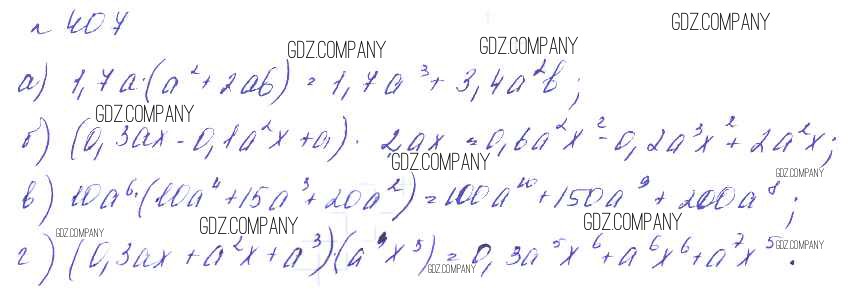 № 407
GDZ.COMPANY GDZ.COMPANY GDZ.COMPANY
а) 1,7a·(a²+2ab) = 1,7a³ + 3,4a²b;
GDZ.COMPANY
б) (0,3ax - 0,1a²x + a)· 2ax = 0,6a²x² - 0,2a³x² + 2a²x;
GDZ.COMPANY GDZ.COMPANY
в) 10a⁶·(10a⁴+15a³+20a²) = 100a¹⁰ + 150a⁹ + 200a⁸;
GDZ.COMPANY GDZ.COMPANY GDZ.COMPANY GDZ.COMPANY
г) (0,3ax + a²x + a³)·(a⁴x⁵) = 0,3a⁵x⁶ + a⁶x⁶ + a⁷x⁵.
GDZ.COMPANY